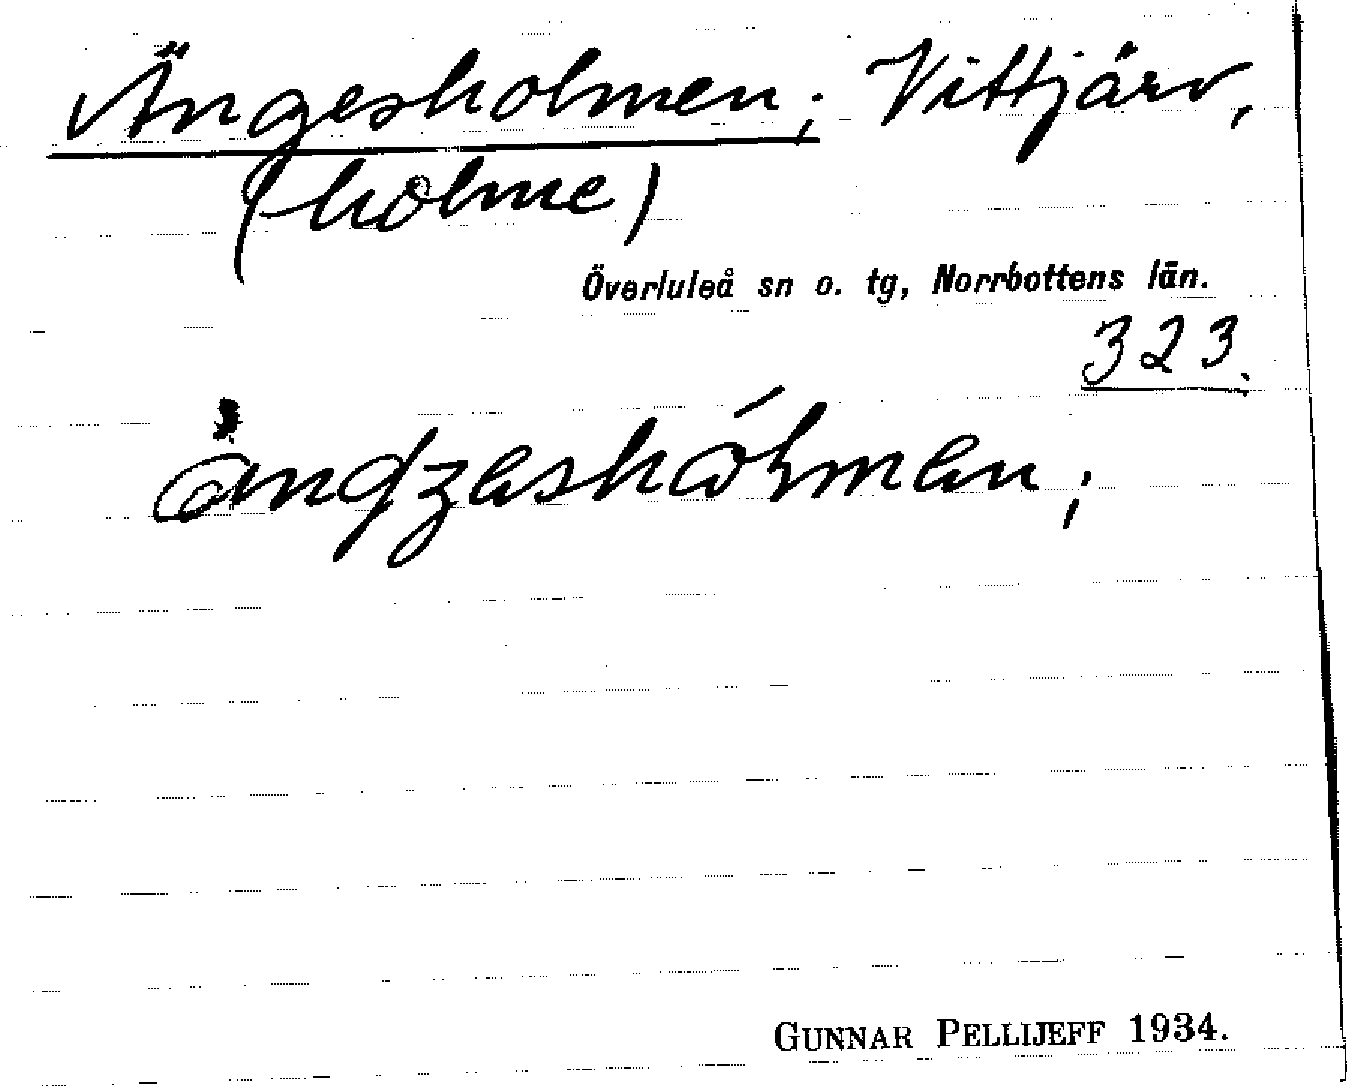 Ängesholmen; Vittjärv,
(holme)
Överluleå sn o. tg, Norrbottens län.
323.
GUNNAR PELLIJEFF 1934.